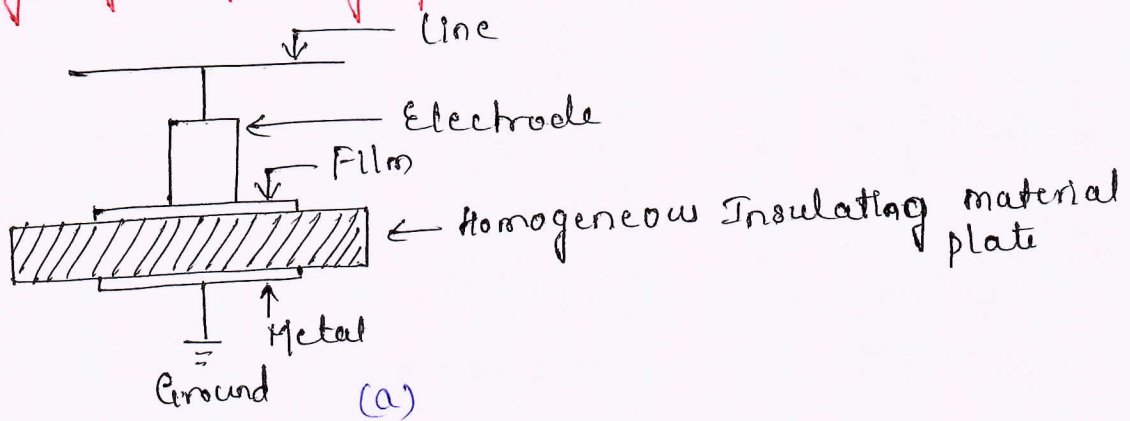 Line
Electrode
Film
Homogeneous Insulating material
plate
Metal
Ground
(a)